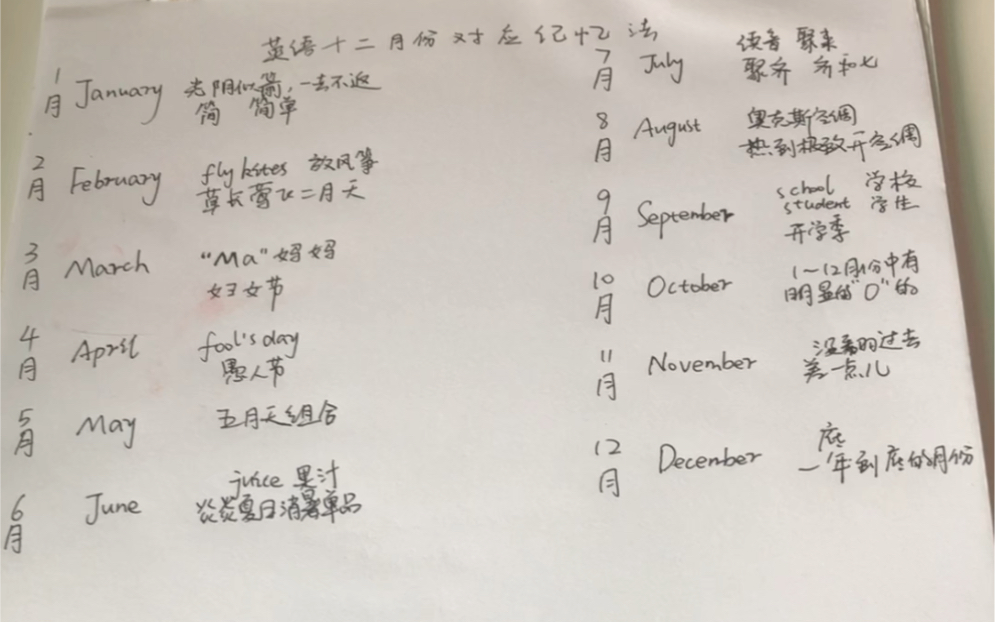 英语十二月份对应纪忆法
1月 January 光阴似箭,一去不返
简 简单
2月 February fly kites 放风筝
草长莺飞二月天
3月 March "Ma"妈妈
妇女节
4月 April fool's day
愚人节
5月 May 五月天组合
6月 June juice 果汁
炎炎夏日消暑单品
7月 July 读音 聚来
聚齐 齐和七
8月 August 奥克斯空调
热到极致开空调
9月 September school 学校
student 学生
开学季
10月 October 1~12月份中有
明显的"O"的
11月 November 没看的过去
差一点儿
12月 December 底
一年到底的月份